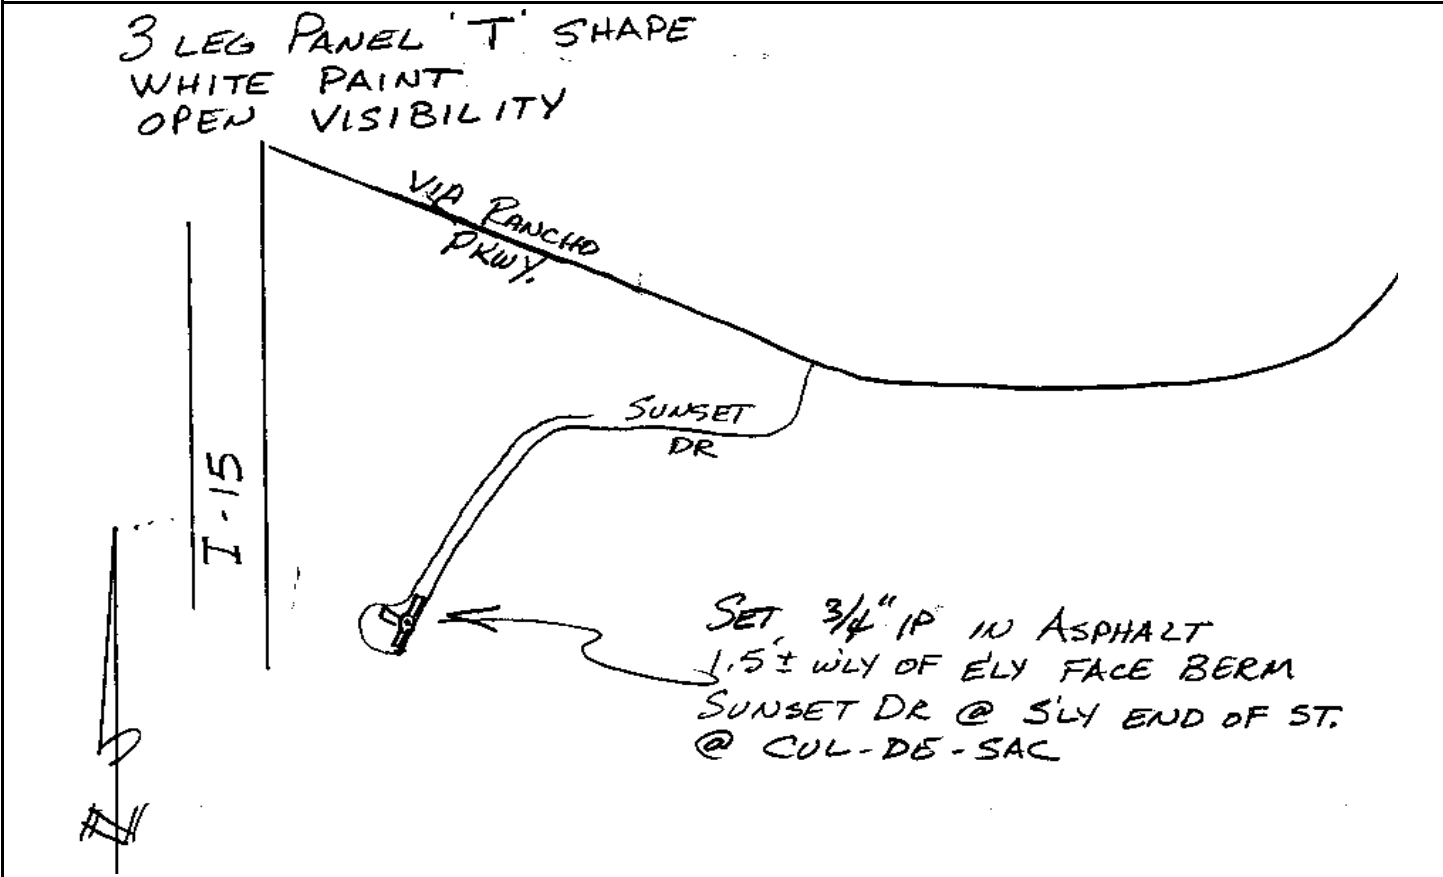 3 LEG PANEL 'T' SHAPE
WHITE PAINT
OPEN VISIBILITY
VIA RANCHO
PKWY.
SUNSET
DR
I-15
SET 3/4" IP IN ASPHALT
1.5'± W'LY OF E'LY FACE BERM
SUNSET DR @ S'LY END OF ST.
@ CUL-DE-SAC
N